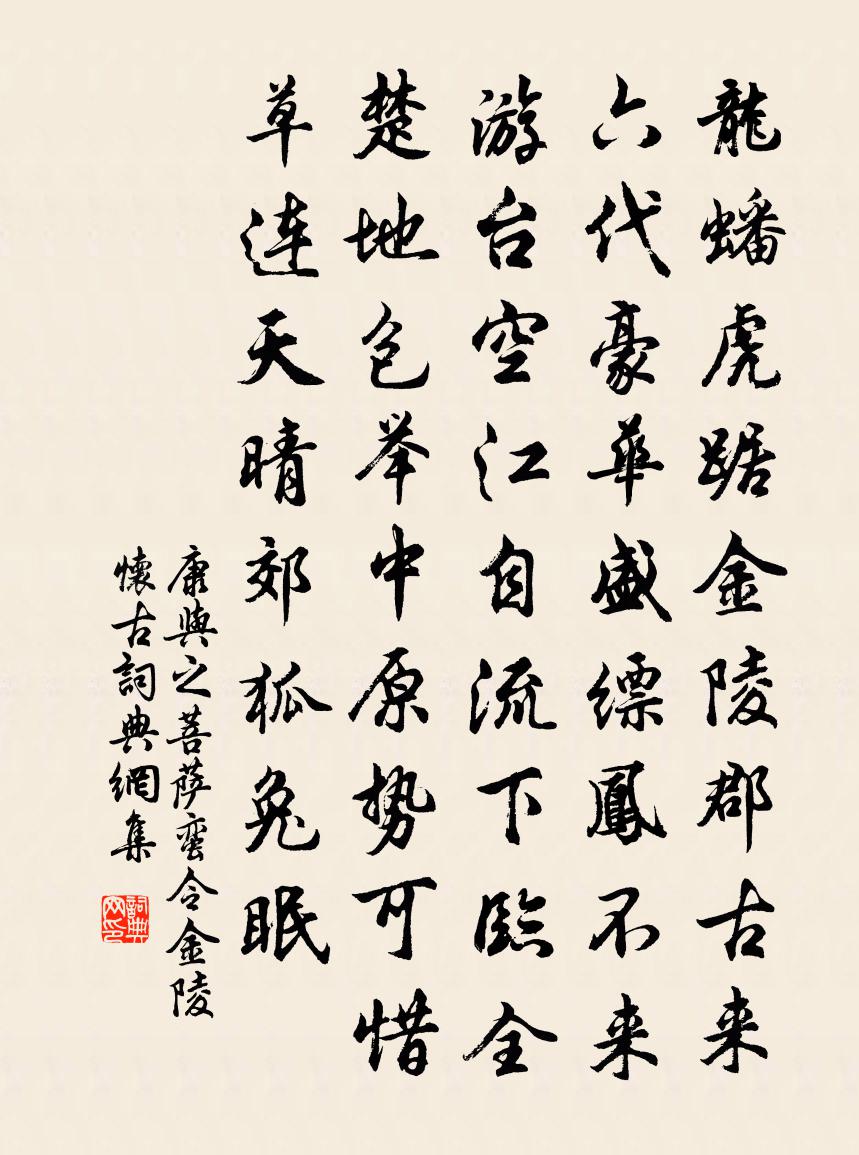 龍蟠虎踞金陵郡古来
六代豪華盛缥鳳不来
游台空江自流下臨全
楚地包举中原势可惜
草連天晴郊狐兔眠
康與之菩萨蛮令金陵
懷古詞典網集
詞典网印